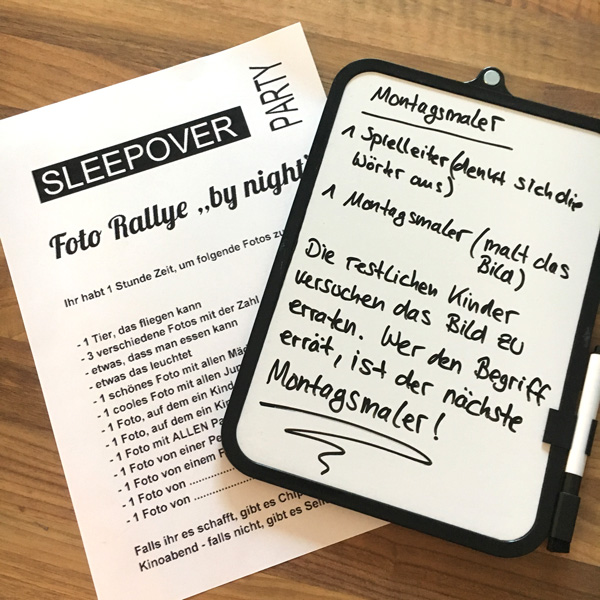 SLEEPOVER
PARTY
Foto Rallye „by night“
Ihr habt 1 Stunde Zeit, um folgende Fotos
- 1 Tier, das fliegen kann
- 3 verschiedene Fotos mit der Zahl
- etwas, dass man essen kann
- etwas das leuchtet
- 1 schönes Foto mit allen
- 1 cooles Foto mit allen
- 1 Foto, auf dem ein Kind
- 1 Foto, auf dem ein
- 1 Foto mit ALLEN
- 1 Foto von einer
- 1 Foto von einem
- 1 Foto von ..............
- 1 Foto von ..............
Falls ihr es schafft, gibt es
Kinoabend - falls nicht, gibt es
Montagsmaler
1 Spielleiter (denkt sich die
Wörter aus)
1 Montagsmaler (malt das
Bild)
Die restlichen Kinder
versuchen das Bild zu
erraten. Wer den Begriff
errät, ist der nächste
Montagsmaler!